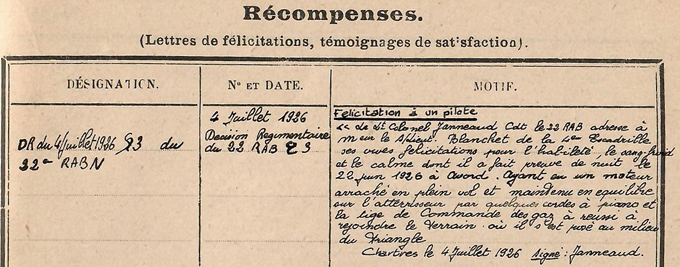 Récompenses.
(Lettres de félicitations, témoignages de satisfaction).
DÉSIGNATION.
Nº ET DATE.
MOTIF.
DR du 4 Juillet 1926 §3 du
22e RABN
4 Juillet 1926
Decision Regimentaire
du 22 RAB § 3
Felicitation à un pilote
"Le Lt Colonel Janneaud Cdt le 22 RAB adresse à
Blanchet de la 4e Escadrille
ses vives felicitations pour l'habileté le sang froid
et le calme dont il a fait preuve de nuit le
22 juin 1926 à Avord. Ayant eu un moteur
arraché en plein vol et maintenu en equilibre
sur l'atterrisseur par quelques cordes à piano et
la tige de Commande des gaz à reussi à
rejoindre le terrain où il s'est posé au milieu
du Triangle
Chartres le 4 Juillet 1926 Signé: Janneaud.